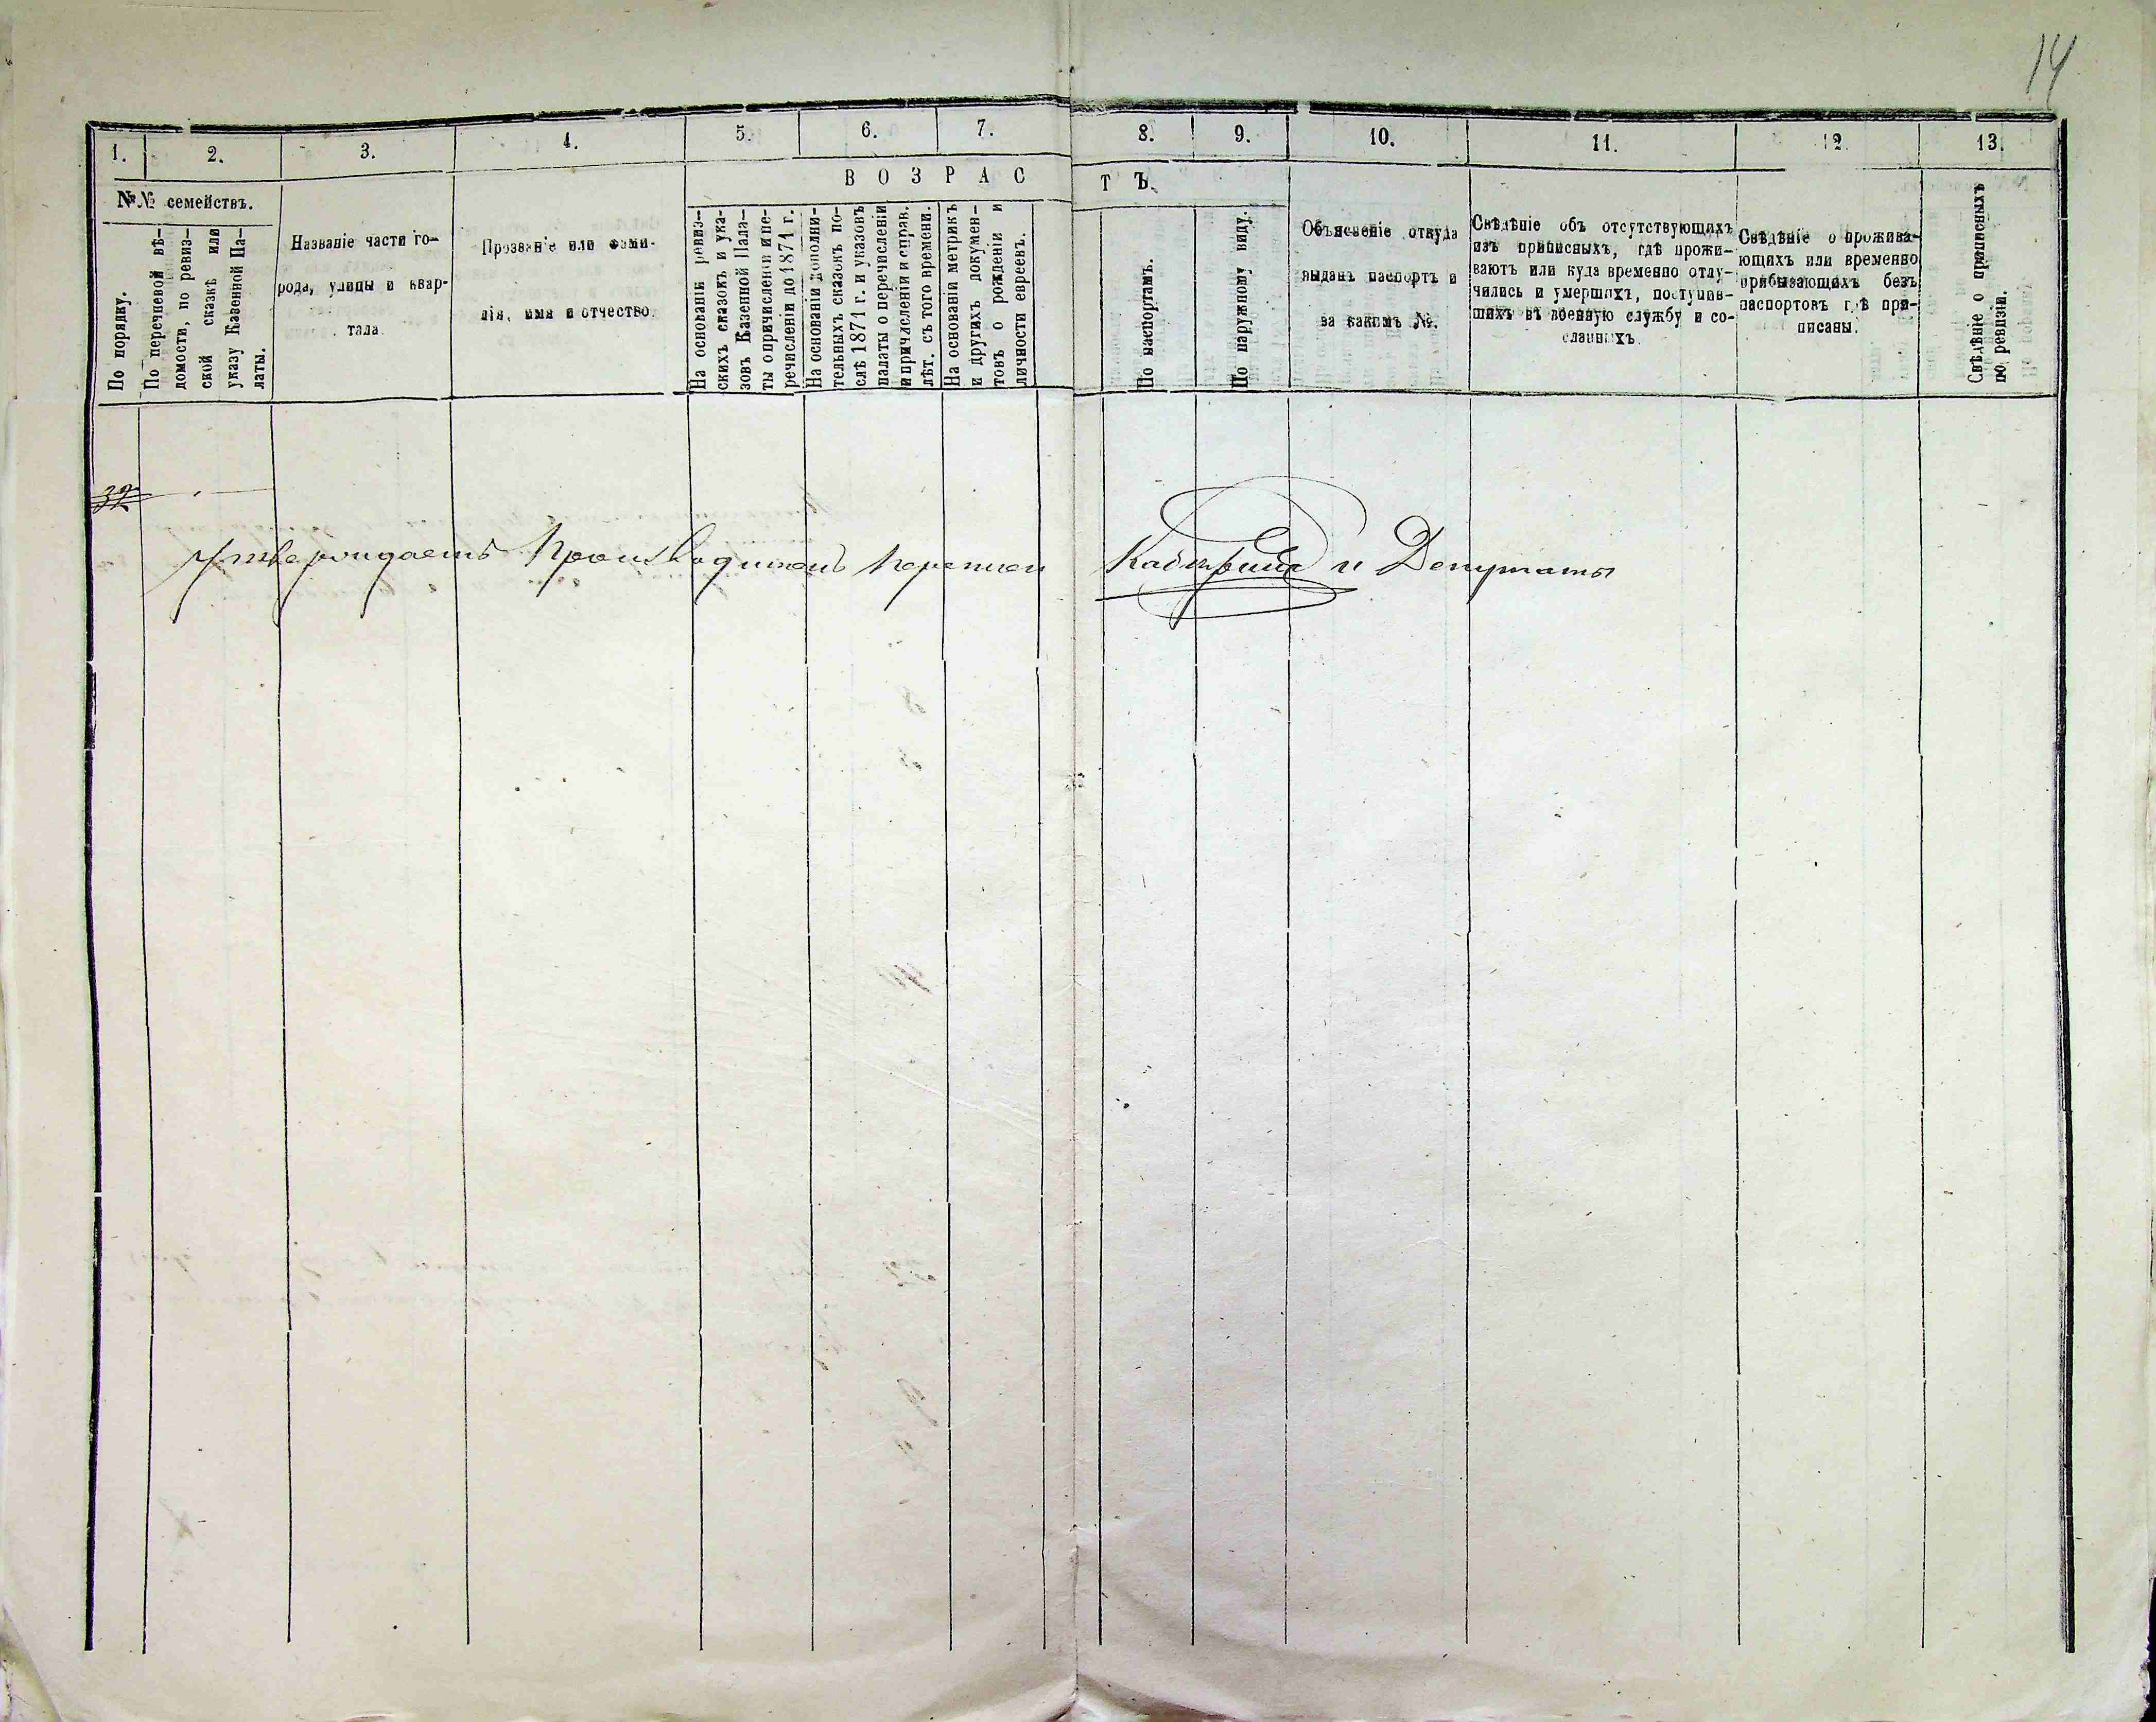 14
1. 2. 3. 4. 5. 6. 7. 8. 9. 10. 11. 12 13.
В О З Р А С Т Ъ.
№№ семействъ.
По порядку.
По перечневой вѣ-
домости, по ревиз-
ской сказкѣ или
указу Казенной Па-
латы.
Названіе части го-
рода, улицы и квар-
тала
Прозваніе или фами-
лія, имя и отчество.
На основаніи ревиз-
скихъ сказокъ и ука-
зовъ Казенной Пала-
ты о причисленіи и пе-
речисленіи до 1871 г.
На основаніи дополни-
тельныхъ сказокъ по-
слѣ 1871 г. и указовъ
палаты о перечисленіи
и причисленіи и справ.
лѣт. съ того времени.
На основаніи метрикъ
и другихъ докумен-
товъ о рожденіи и
личности евреевъ.
По паспортамъ.
По наружному виду.
Объясненіе откуда
выданъ паспортъ и
за какимъ №.
Свѣдѣніе объ отсутствующихъ
изъ приписныхъ, гдѣ прожи-
ваютъ или куда временно отлу-
чились и умершихъ, поступив-
шихъ въ военную службу и со-
сланныхъ
Свѣдѣніе о прожива-
ющихъ или временно
прибывающихъ безъ
паспортовъ гдѣ при-
писаны.
Свѣдѣніе о приписныхъ
по ревизіи.
32
Утверждаемъ Производитель Переписи и Депутаты